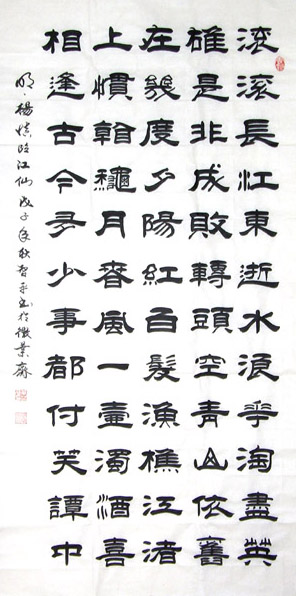 滚滚長江東逝水浪華淘盡英
雄是非成敗轉頭空青山依舊
在幾度夕陽紅白髮漁樵江渚
上慣看龝月春風一壺濁酒喜
相逢古今多少事都付笑譚中
明·楊慎臨江仙 戊子年秋智平書於業齋